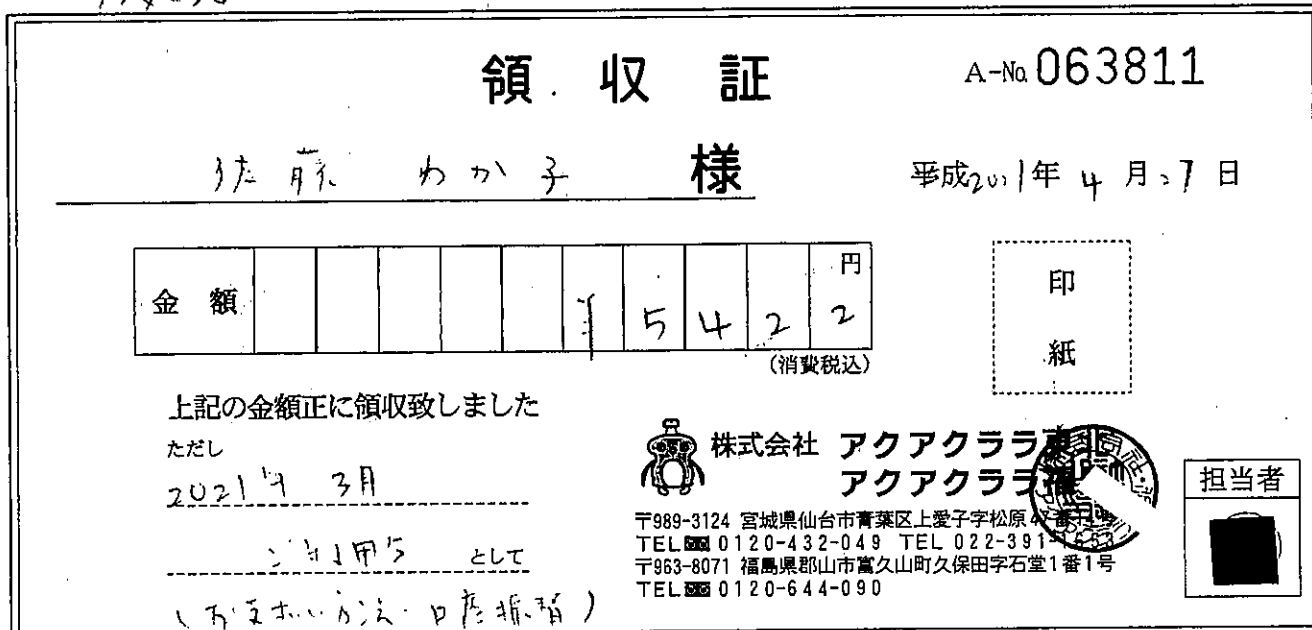 領収証
A-No. 063811
佐藤 わか子 様
平成2021年 4月27日
金額 ¥5422円
(消費税込)
印紙
上記の金額正に領収致しました
ただし
2021年 3月
ご利用分 として
(お支払い方法・口座振替)
株式会社 アクアクララ東北
アクアクララ
〒989-3124 宮城県仙台市青葉区上愛子字松原47番
TEL 0120-432-049 TEL 022-391-1653
〒963-8071 福島県郡山市富久山町久保田字石堂1番1号
TEL 0120-644-090
担当者